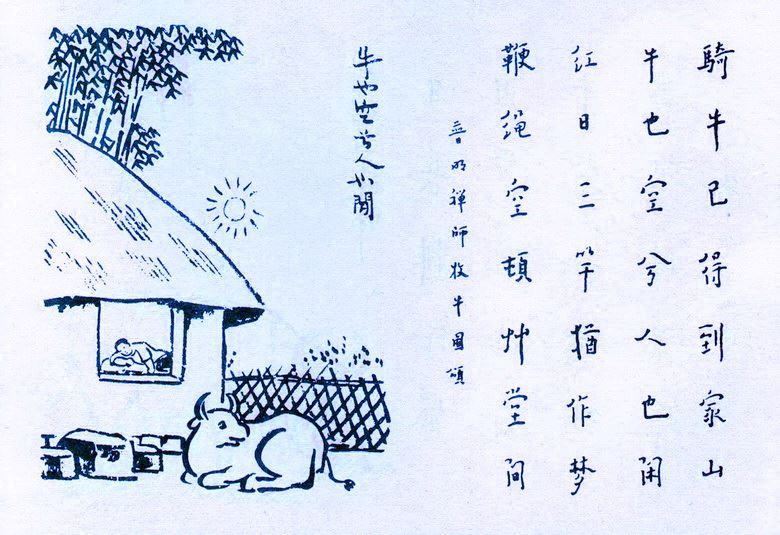 騎牛已得到家山
牛也空兮人也闲
红日三竿猶作梦
鞭绳空頓艸堂间
普明禪師牧牛圖頌
牛也空兮人也閒